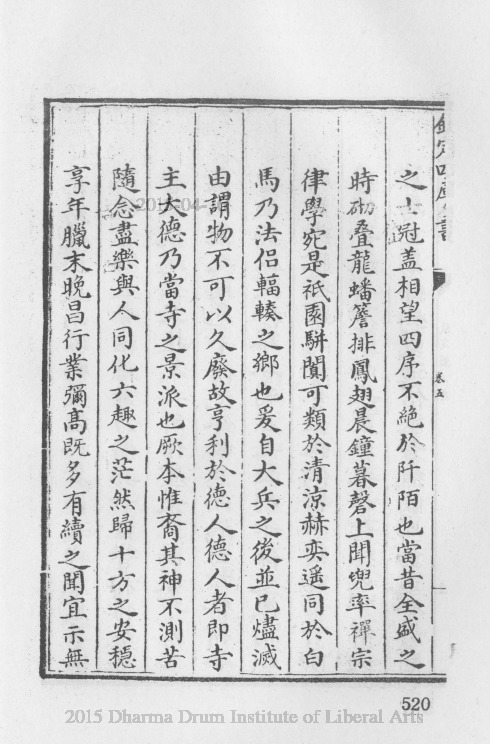 欽定四庫全書
卷五
之士冠盖相望四序不絶於阡陌也當昔全盛之
時砌叠龍蟠簷排鳳翅晨鐘暮磬上聞兜率禪宗
律學宛是祇園駢闐可類於清涼赫奕遥同於白
馬乃法侣輻輳之鄉也爰自大兵之後並已燼滅
由謂物不可以久廢故亨利於徳人徳人者即寺
主大德乃當寺之景派也厥本惟裔其神不測苦
隨念盡樂與人同化六趣之茫然歸十方之安穏
享年臘末晚昌行業彌髙既多有續之聞宜示無
520
2015 Dharma Drum Institute of Liberal Arts